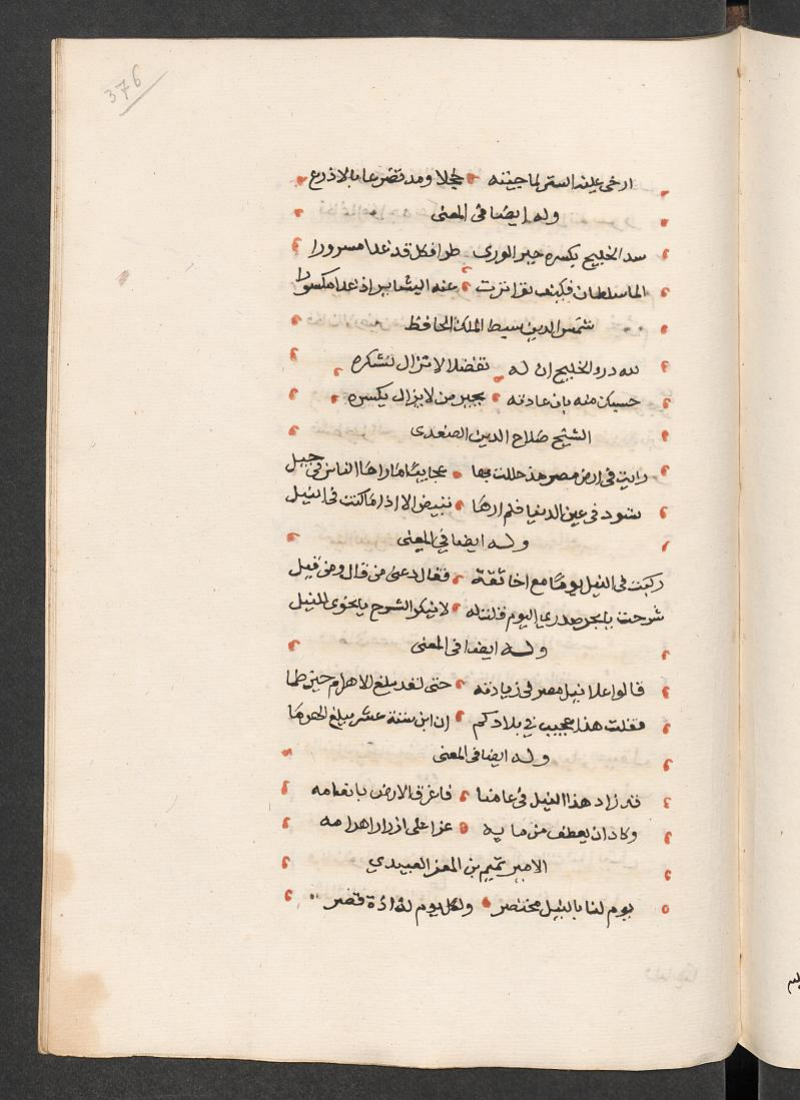 376
ارخى عليه الستر لما جيته خجلا ومد تضرعا بالاذرع
وله ايضا في المعنى
سد الخليج بكسره جبر الورى طرا فكل قد غدا مسرورا
الما سلطان فكيف تواترت عنه البشاير اذ غدا مكسورا
شمس الدين سبط الملك الحافظ
لله در الخليج ان له تفضلا لا تزال نشكره
حسبك منه بان عادته بجبر من لا يزال يكسره
الشيخ صلاح الدين الصفدى
رايت في ارض مصر مذ حللت بها عجايبا ما راها الناس في جيل
تسود في عين الدنيا فلم ارها تبيض الا اذا ما كنت في النيل
وله ايضا في المعنى
ركبت في النيل يوما مع اخا ثقة فقال دعنى من قال ومن قيل
شرحت يا بحر صدري اليوم قلت له لا ينكر الشرح يا نحوى للنيل
وله ايضا في المعنى
قالوا علا نيل مصر في زيادته حتى لقد بلغ الاهرام حين طما
فقلت هذا عجيب في بلادكم ان ابن ستة عشر يبلغ الهرما
وله ايضا في المعنى
قد زاد هذا النيل في عامنا فاغرق الارض بانعامه
وكاد ان يعطف من مايه عرا على ازرار اهرامه
الامير تميم بن المعز العبيدي
يوم لنا بالنيل مختصر ولكل يوم لذاذة قصر